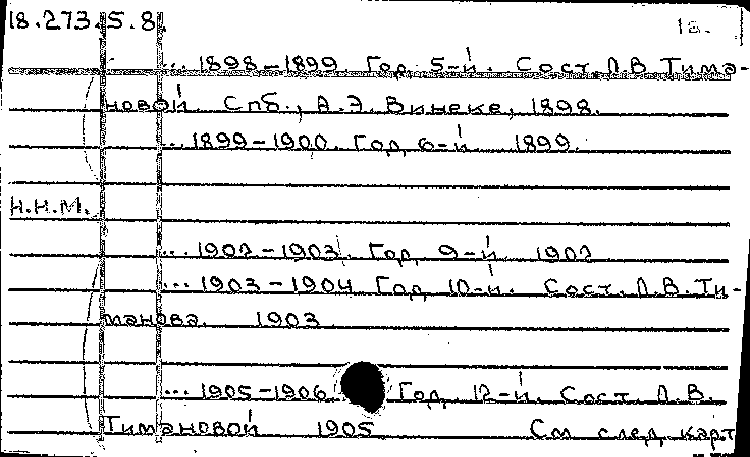 18.273.5.8. 1а.
... 1898-1899. Год 5-й. Сост. Л.В. Тима-
новой. Спб., А.Э. Винеке, 1898.
... 1899-1900. Год 6-й 1899.
Н.Н.М.
... 1902-1903. Год 9-й 1902
... 1903-1904 Год 10-й. Сост. Л.В. Ти-
манова. 1903
... 1905-1906 Год 12-й. Сост. Л.В.
Тимановой 1905 См след. карт